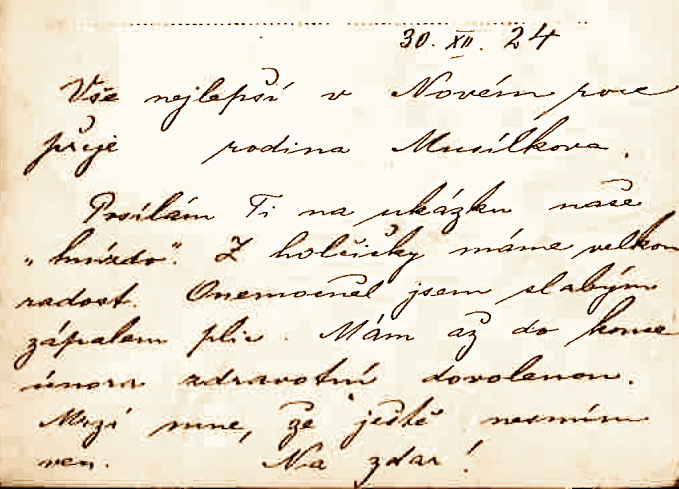 30. XII. 24
Vše nejlepší v Novém roce
přeje rodina Musílkova.
Posílám Ti na ukázku naše
„hnízdo". Z holčičky máme velkou
radost. Onemocněl jsem slabým
zápalem plic. Mám až do konce
února zdravotní dovolenou.
Mrzí mne, že ještě nesmím
ven. Na zdar!